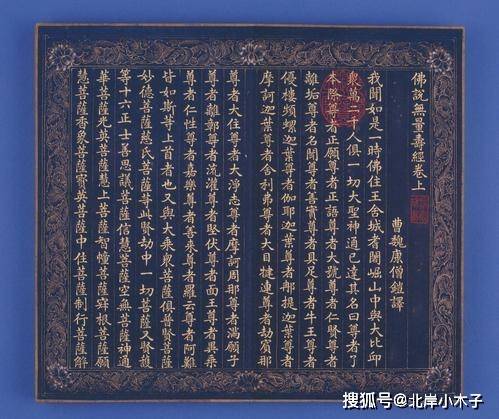 佛說無量壽經卷上
曹魏康僧鎧譯
我聞如是一時佛住王舍城耆闍崛山中與大比丘
眾萬二千人俱一切大聖神通已達其名曰尊者了
本際尊者正願尊者正語尊者大號尊者仁賢尊者
離垢尊者名聞尊者善實尊者具足尊者牛王尊者
優樓頻螺迦葉尊者伽耶迦葉尊者那提迦葉尊者
摩訶迦葉尊者舍利弗尊者大目揵連尊者劫賓那
尊者大住尊者大淨志尊者摩訶周那尊者滿願子
尊者離鄣尊者流灌尊者堅伏尊者面王尊者異乘
尊者仁性尊者嘉樂尊者善來尊者羅云尊者阿難
皆如斯等上首者也又與大乘眾菩薩俱普賢菩薩
妙德菩薩慈氏菩薩等此賢劫中一切菩薩又賢護
等十六正士善思議菩薩信慧菩薩空無菩薩神通
華菩薩光英菩薩慧上菩薩智幢菩薩寂根菩薩願
慧菩薩香象菩薩寶英菩薩中住菩薩制行菩薩解
搜狐号@北岸小木子